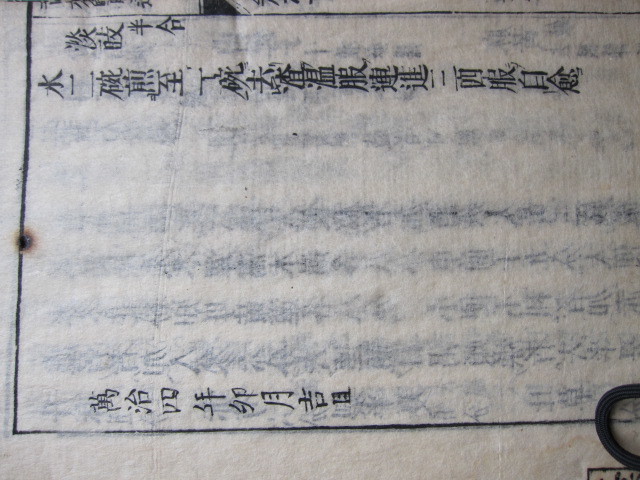 淡豉半合
水二碗煎至一碗去渣溫服連進三四服自愈
萬治四年卯月吉旦